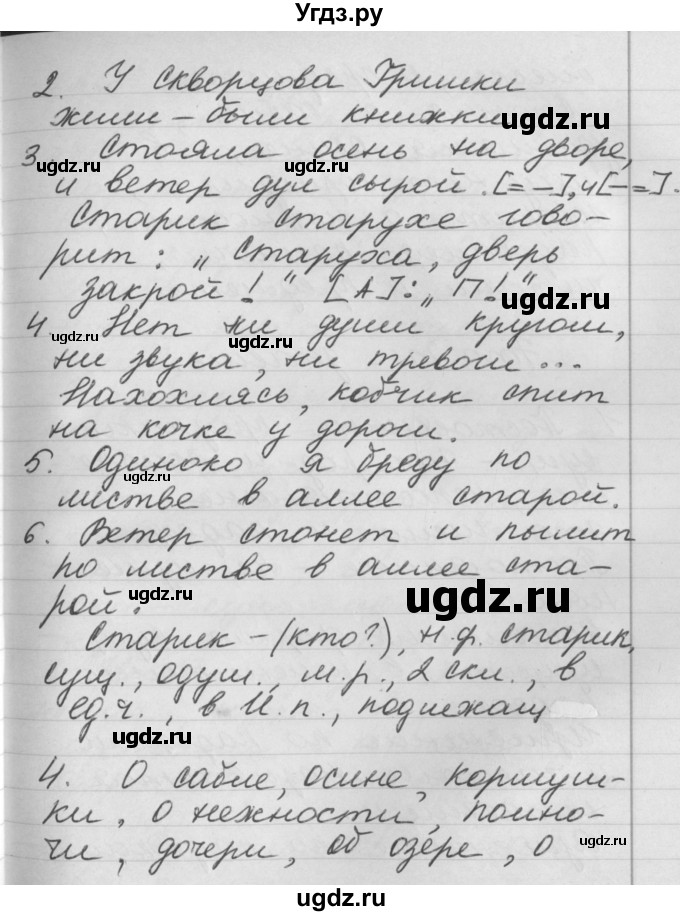 Угдз.ру
2. У Скворцова Гришки
жили – были книжки
3. Стояла осень на дворе,
и ветер дул сырой. [= –], и [– =].
Старик старухе гово-
рит: „ Старуха, дверь
закрой! “ [А]: „ П! “
4 Нет ни души кругом,
ни звука, ни тревоги ...
Нахохлясь, кобчик спит
на кочке у дороги.
5. Одиноко я бреду по
листве в аллее старой.
6. Ветер стонет и пылит
по листве в аллее ста-
рой.
Старик – (кто?), н.ф. старик,
сущ., одуш., м.р., 2 скл., в
ед.ч., в И.п., подлежащ
4. О сабле, осине, кормуш-
ки, о нежности, полно-
чи, дочери, об озере, о
ugdz.ru
ugdz.ru
ugdz.ru
ugdz.ru
ugdz.ru
ugdz.ru
ugdz.ru
ugdz.ru
ugdz.ru
ugdz.ru
ugdz.ru
ugdz.ru
ugdz.ru
ugdz.ru